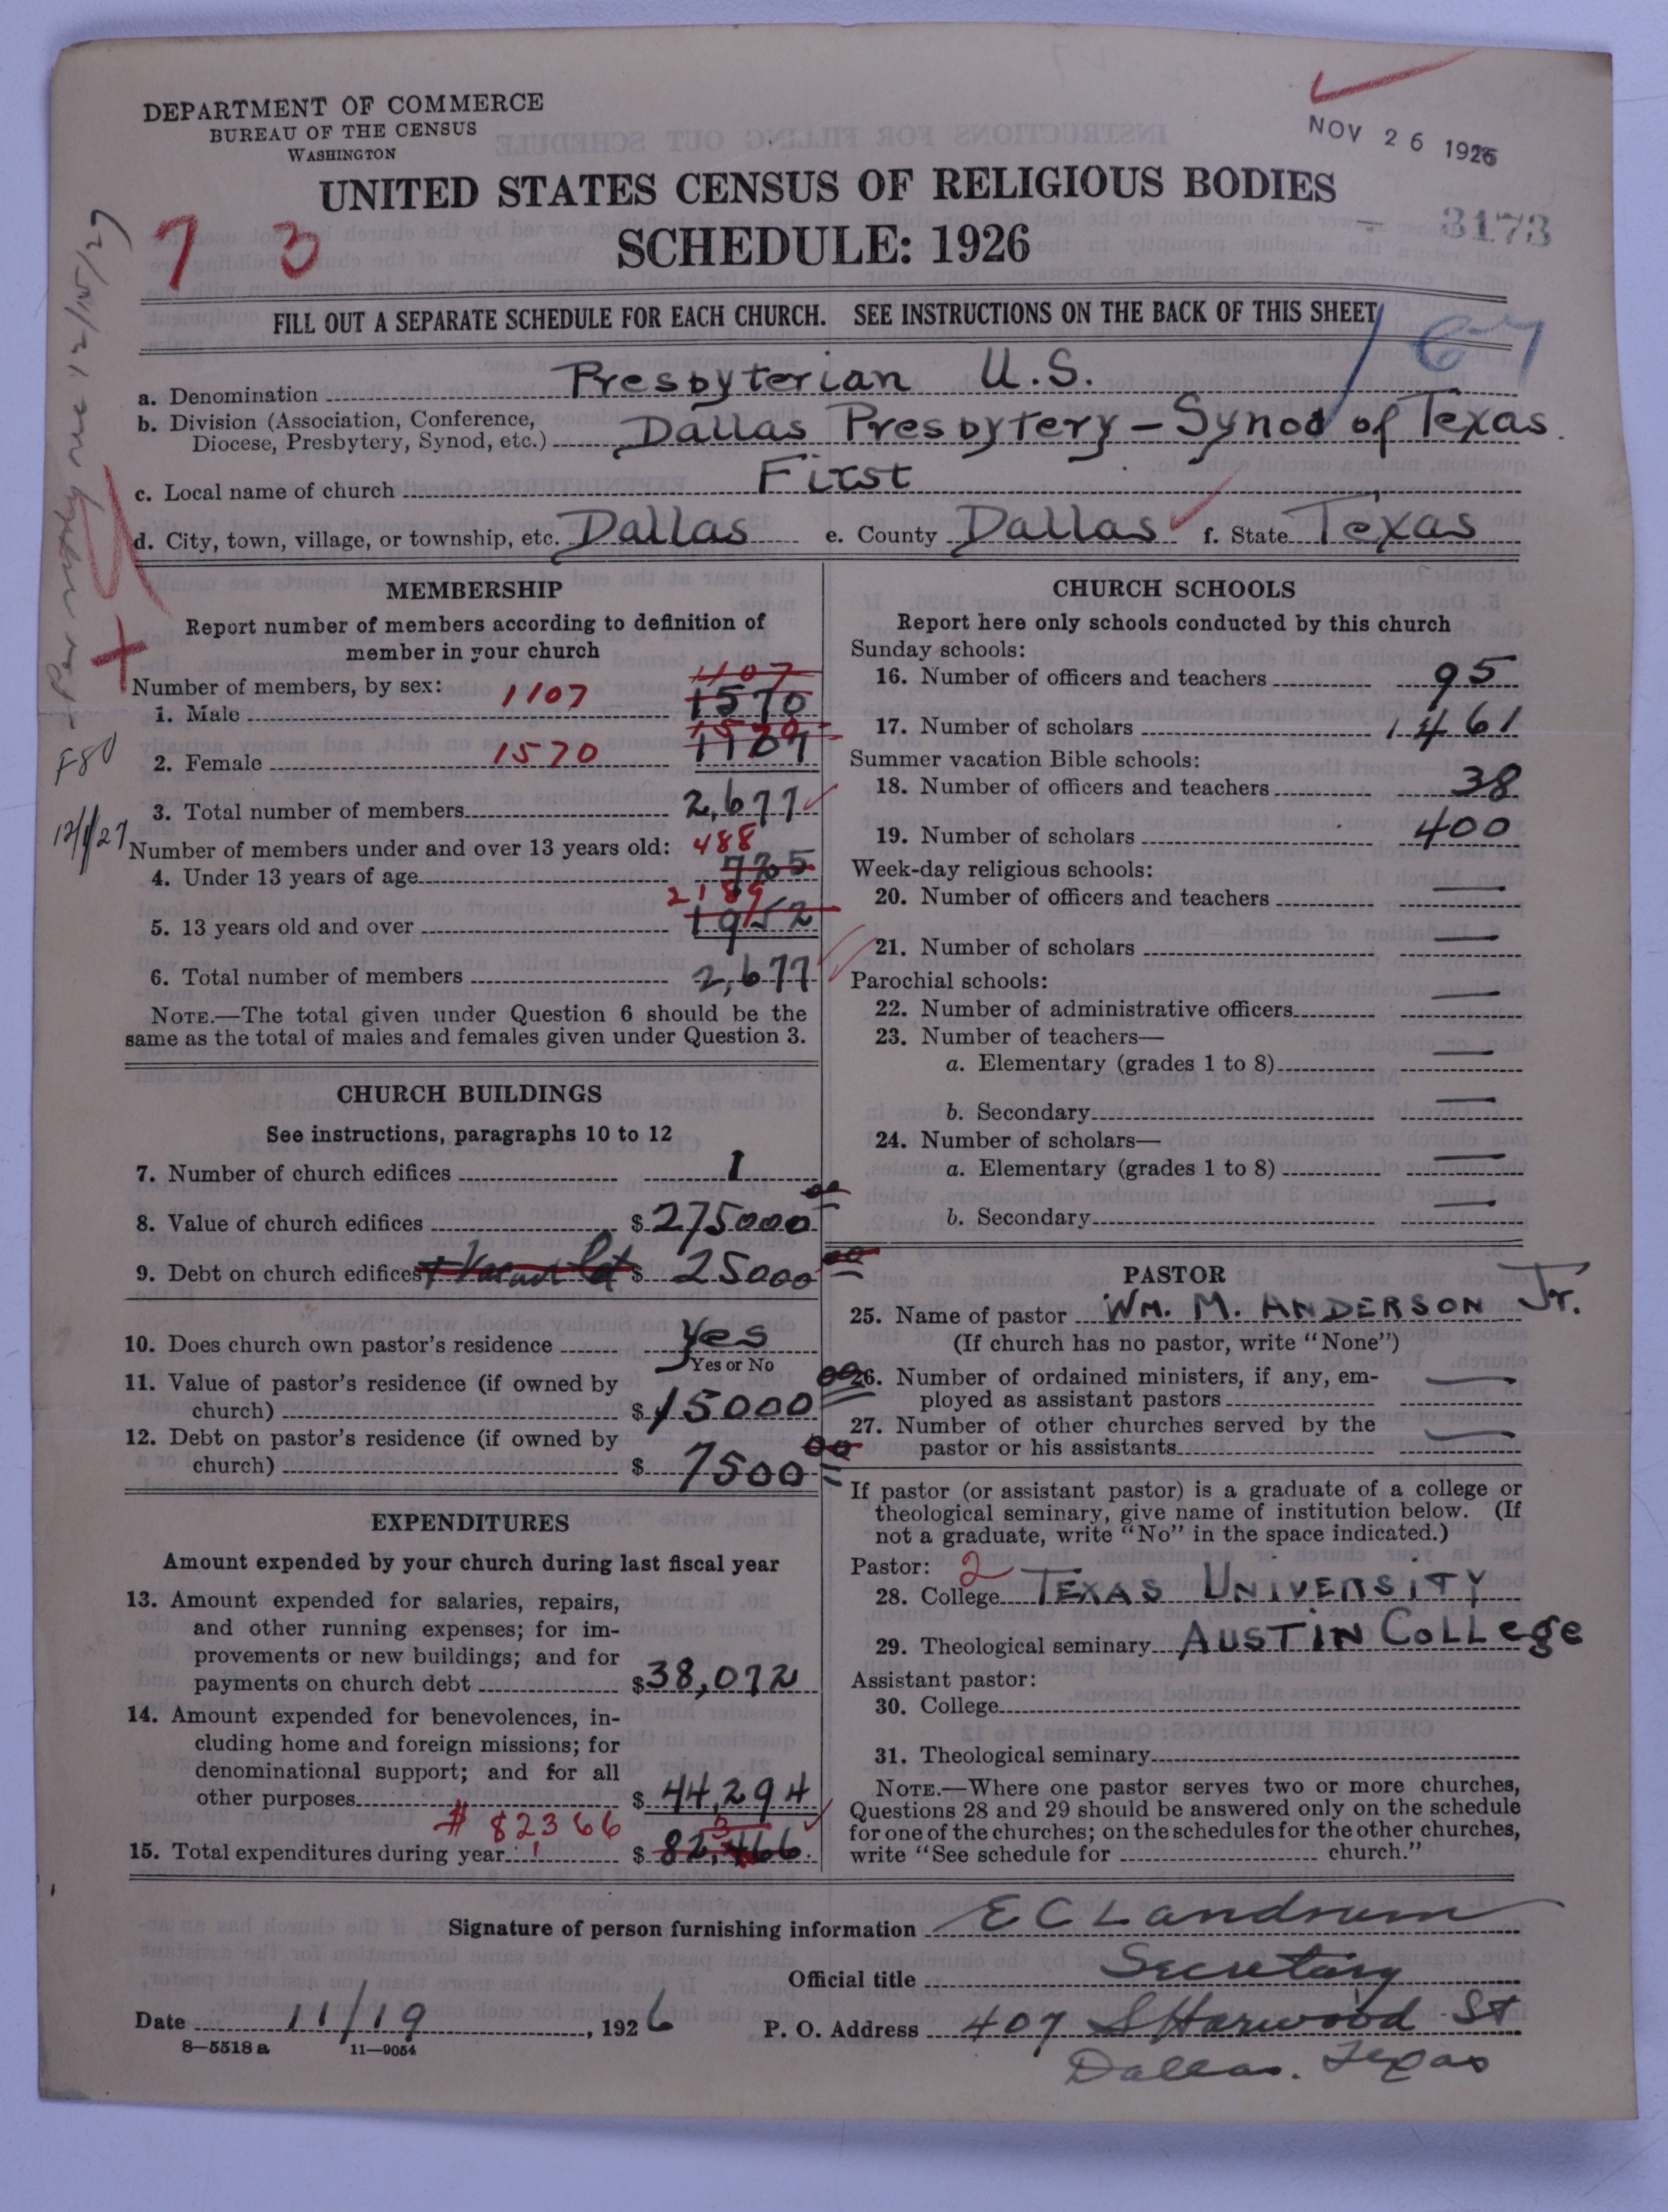 DEPARTMENT OF COMMERCE
BUREAU OF THE CENSUS
WASHINGTON
NOV 26 1926
UNITED STATES CENSUS OF RELIGIOUS BODIES
SCHEDULE: 1926
7 3
3173
FILL OUT A SEPARATE SCHEDULE FOR EACH CHURCH. SEE INSTRUCTIONS ON THE BACK OF THIS SHEET
167
a. Denomination Presbyterian U.S.
b. Division (Association, Conference,
Diocese, Presbytery, Synod, etc.) Dallas Presbytery – Synod of Texas.
c. Local name of church First
d. City, town, village, or township, etc. Dallas e. County Dallas f. State Texas
MEMBERSHIP
Report number of members according to definition of
member in your church
Number of members, by sex: 1107
1. Male 1107 1570
2. Female 1570 1570 1107
3. Total number of members 2,677
Number of members under and over 13 years old: 488
4. Under 13 years of age 725
2189
5. 13 years old and over 1952
6. Total number of members 2,677
NOTE.—The total given under Question 6 should be the
same as the total of males and females given under Question 3.
F80
12/1/27
CHURCH BUILDINGS
See instructions, paragraphs 10 to 12
7. Number of church edifices 1
8. Value of church edifices $ 275000 00
9. Debt on church edifices + Vacant lot $ 25000 00
10. Does church own pastor's residence Yes
Yes or No
11. Value of pastor's residence (if owned by
church) $ 15000 00
12. Debt on pastor's residence (if owned by
church) $ 7500 00
EXPENDITURES
Amount expended by your church during last fiscal year
13. Amount expended for salaries, repairs,
and other running expenses; for im-
provements or new buildings; and for
payments on church debt $38,072
14. Amount expended for benevolences, in-
cluding home and foreign missions; for
denominational support; and for all
other purposes $ 44,294
# 82366 3
15. Total expenditures during year $ 82,466.
CHURCH SCHOOLS
Report here only schools conducted by this church
Sunday schools:
16. Number of officers and teachers 95
17. Number of scholars 1461
Summer vacation Bible schools:
18. Number of officers and teachers 38
19. Number of scholars 400
Week-day religious schools:
20. Number of officers and teachers —
21. Number of scholars —
Parochial schools:
22. Number of administrative officers —
23. Number of teachers—
a. Elementary (grades 1 to 8) —
b. Secondary —
24. Number of scholars—
a. Elementary (grades 1 to 8) —
b. Secondary —
PASTOR
25. Name of pastor WM. M. ANDERSON Jr.
(If church has no pastor, write "None")
26. Number of ordained ministers, if any, em-
ployed as assistant pastors —
27. Number of other churches served by the
pastor or his assistants —
If pastor (or assistant pastor) is a graduate of a college or
theological seminary, give name of institution below. (If
not a graduate, write "No" in the space indicated.)
Pastor: 2
28. College TEXAS UNIVERSITY
29. Theological seminary AUSTIN COLLEge
Assistant pastor:
30. College
31. Theological seminary
NOTE.—Where one pastor serves two or more churches,
Questions 28 and 29 should be answered only on the schedule
for one of the churches; on the schedules for the other churches,
write "See schedule for church."
Signature of person furnishing information E C Landrum
Official title Secretary
Date 11/19, 1926 P. O. Address 407 S Harwood St
Dallas. Texas
8—5518 a 11—9054